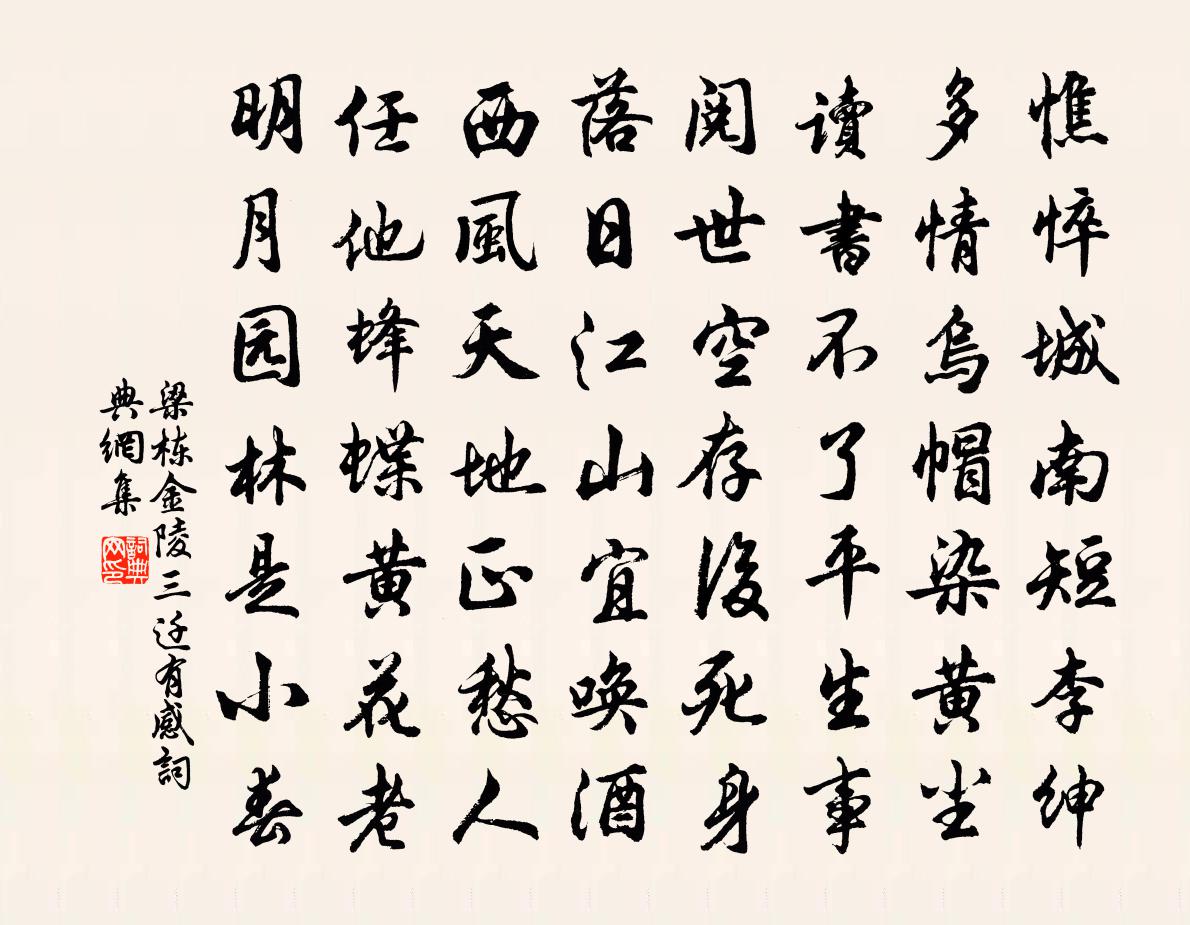 憔悴城南短李紳
多情烏帽染黄尘
讀書不了平生事
閱世空存後死身
落日江山宜唤酒
西風天地正愁人
任他蜂蝶黄花老
明月园林是小春
梁栋金陵三迁有感詞
典網集
詞典
网印